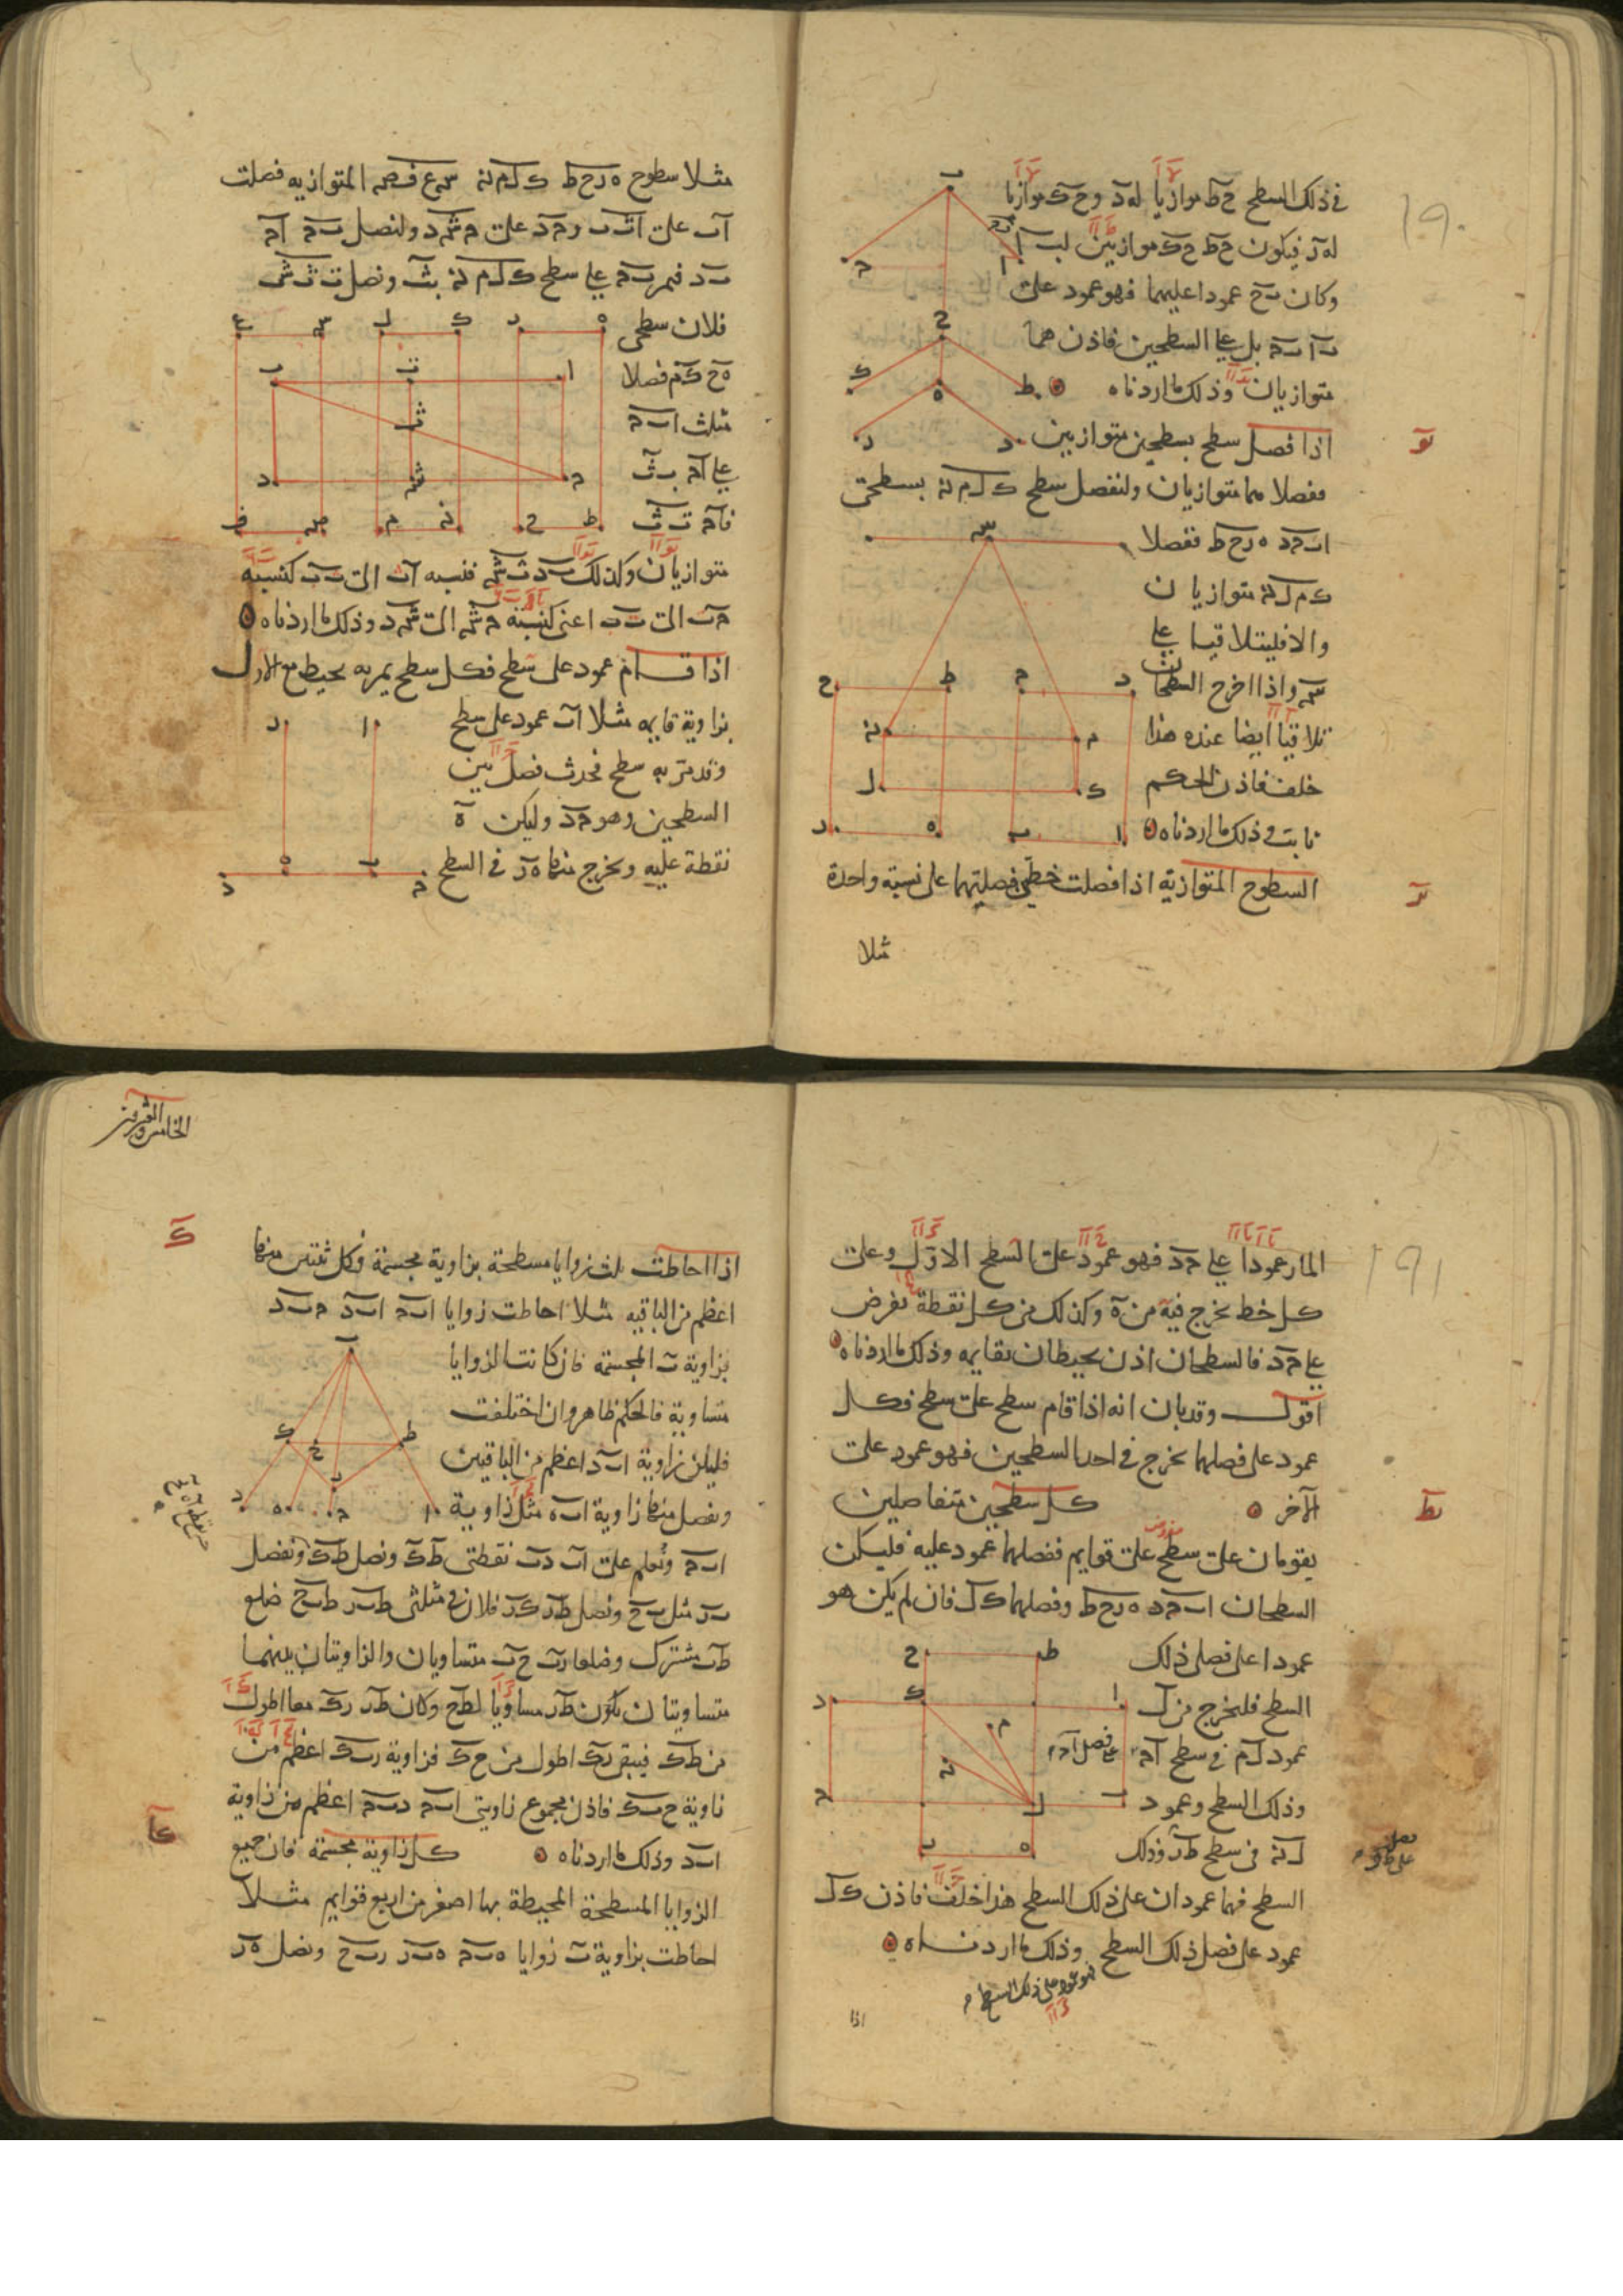 ١٩٠
في ذلك السطح ح ط موازيا ل ه د وح ك موازيا
ل ه ر فيكون ح ط ح ك موازيين ل ب ا
وكان ب ح عمودا عليهما فهو عمود على
ب ا ب ح بل على السطحين فاذن هما
متوازيان وذلك ما اردناه
يو
اذا فصل سطح بسطحين متوازيين
ففصلاهما متوازيان ولنفصل سطح ك ل م ن بسطحى
ا ب ح د ه ر ح ط بفصلا
ك م ل ن متوازيان
والا فليتلاقيا على
س واذا اخرج السطحان
تلاقيا ايضا عنده هذا
خلف فاذن الحكم
ثابت وذلك ما اردناه
يز
السطوح المتوازية اذا فصلت خطين فصلتهما على نسبة واحدة
مثلا
مثلا سطوح ه ر ح ط ك ل م ن س ع ف ص المتوازيه فصلت
ا ب على ا ت ب و ح د على ح ش د ولنصل ب ح ا ح
ب د فيمر ب ح على سطح ك ل م ن ب ث ونصل ت ث ث ش
فلان سطحى
ه ح ك م فصلا
مثلث ا ب ح
على ا ح ت ث
فا ح ت ث
متوازيان وكذلك ب د ث ش فنسبه ا ت الى ت ب كنسبه
ح ث الى ث ب اعنى كنسبة ح ش الى ش د وذلك ما اردناه
اذا قام عمود على سطح فكل سطح يمر به يحيط مع الاول
بزاوية قايمه مثلا ا ب عمود على سطح
وقد مر به سطح فحدث فصل بين
السطحين وهو ح د وليكن ه
نقطة عليه ونخرج منها ه ر في السطح
١٩١
المار عمودا على ح د فهو عمود على السطح الاول وعلى
كل خط يخرج فيه من ه وكذلك من كل نقطة تفرض
على ح د فالسطحان اذن يحيطان بقايمه وذلك ما اردناه
اقول وقد بان انه اذا قام سطح على سطح فكل
عمود على فصلهما يخرج في احد السطحين فهو عمود على
الآخر كل سطحين متفاصلين
يط
يقومان على سطح على قوايم ففصلهما عمود عليه فليكن
السطحان ا ب ح د ه ر ح ط وفصلهما ك ل فان لم يكن هو
عمودا على فصلى ذلك
السطح فلنخرج من ل
عمود ل م في سطح ا ح على فصل ا ح
وذلك السطح وعمود
ل ن في سطح ط ر وذلك
السطح فهما عمودان على ذلك السطح هذا خلف فاذن ك ل
عمود على فصل ذلك السطح وذلك ما اردناه
فهو عمود على ذلك السطح
اذا
الخامس والعشرين
ك
اذا احاطت ثلث زوايا مسطحة بزاوية مجسمة فكل ثنتين منها
اعظم من الباقيه مثلا احاطت زوايا ا ب ح ا ب د ح ب د
بزاوية ب المجسمة فان كانت الزوايا
متساوية فالحكم ظاهر وان اختلفت
فليكن زاوية ا ب د اعظم من الباقيين
ونفصل منها زاوية ا ب ه مثل زاوية
ا ب ح ونعلم على ا ب د ب نقطتى ط ك ونصل ط ك ونفصل
ب ر مثل ب ح ونصل ط ر ك ر فلان في مثلثى ط ب ر ط ب ح ضلع
ط ب مشترك وضلعا ر ب ح ب متساويان والزاويتان بينهما
متساويتان يكون ط ر مساويا ل ط ح وكان ط ر ر ك معا اطول
من ط ك فيبقى ر ك اطول من ح ك فزاوية ر ب ك اعظم من
زاوية ح ب ك فاذن مجموع زاويتى ا ب ح د ب ح اعظم من زاوية
ا ب د وذلك ما اردناه كل زاوية مجسمة فان جميع
كا
الزوايا المسطحة المحيطة بها اصغر من اربع قوايم مثلا
احاطت بزاوية ب زوايا ه ب ح ه ب ر ر ب ح ونصل ه ر